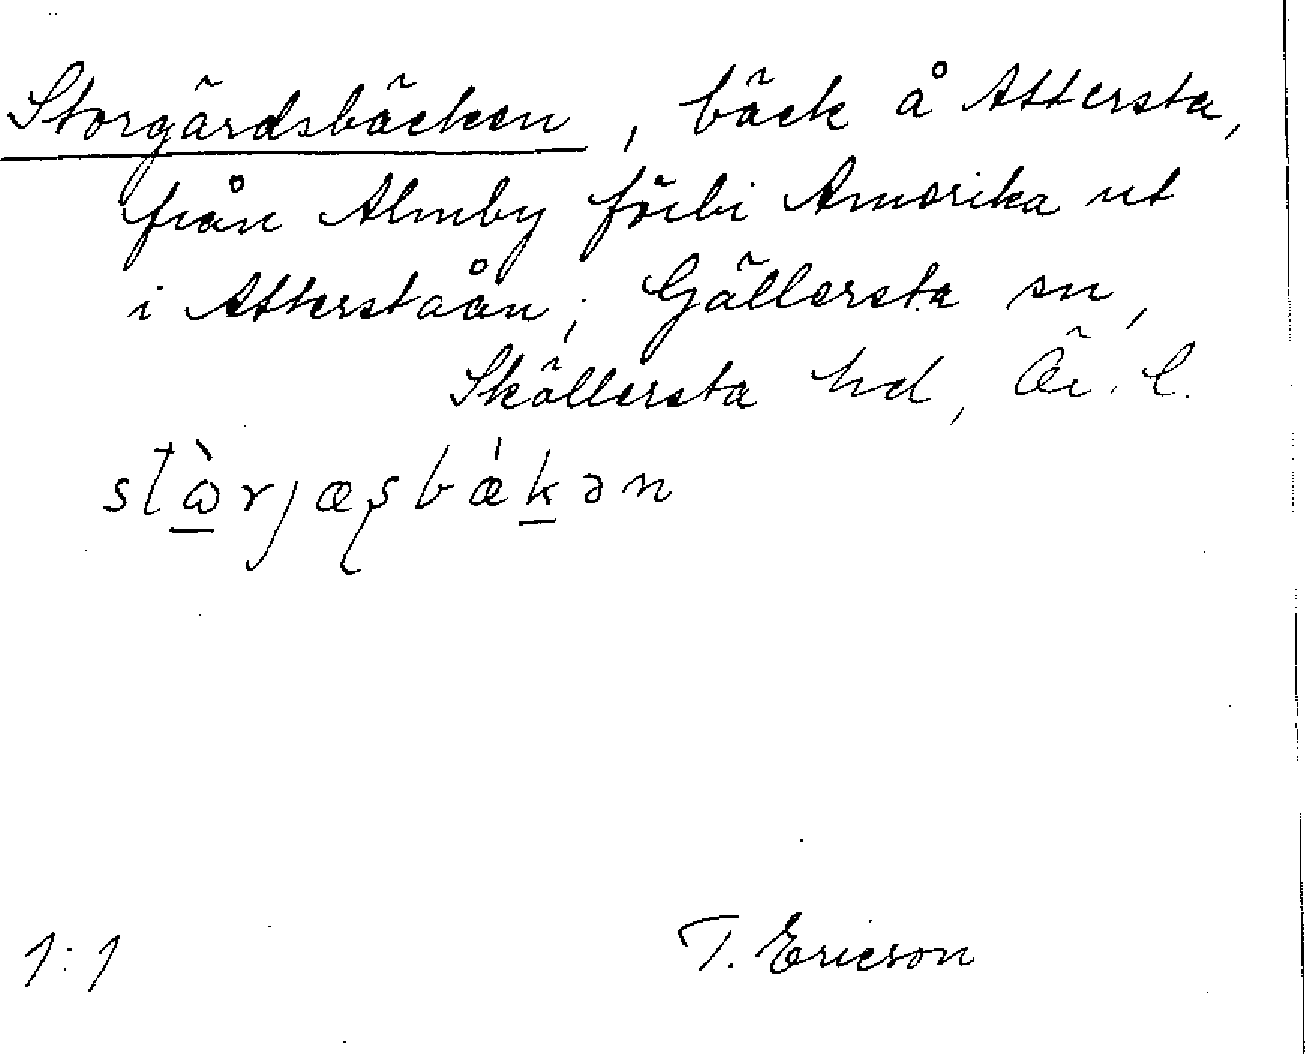 Storgärdsbäcken, bäck å Attersta,
från Almby förbi Amerika ut
i Atterstaån; Gällersta sn,
Sköllersta hd, Ör. l.
stὼrjæʂbǽkən
1:1
T. Ericson